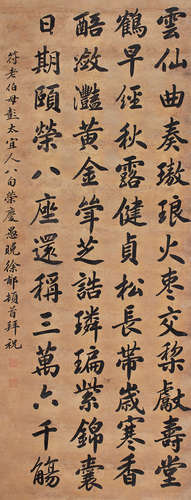 雲仙曲奏璈琅棗交棃獻壽堂
鶴早經秋露健貞松長帶歲寒香
醅瀲灩黃金斝芝誥璘㻞紫錦囊
日期頤榮八座還稱三萬六千觴
符老伯母彭太宜人八旬榮慶愚晚徐郙頓首拜祝